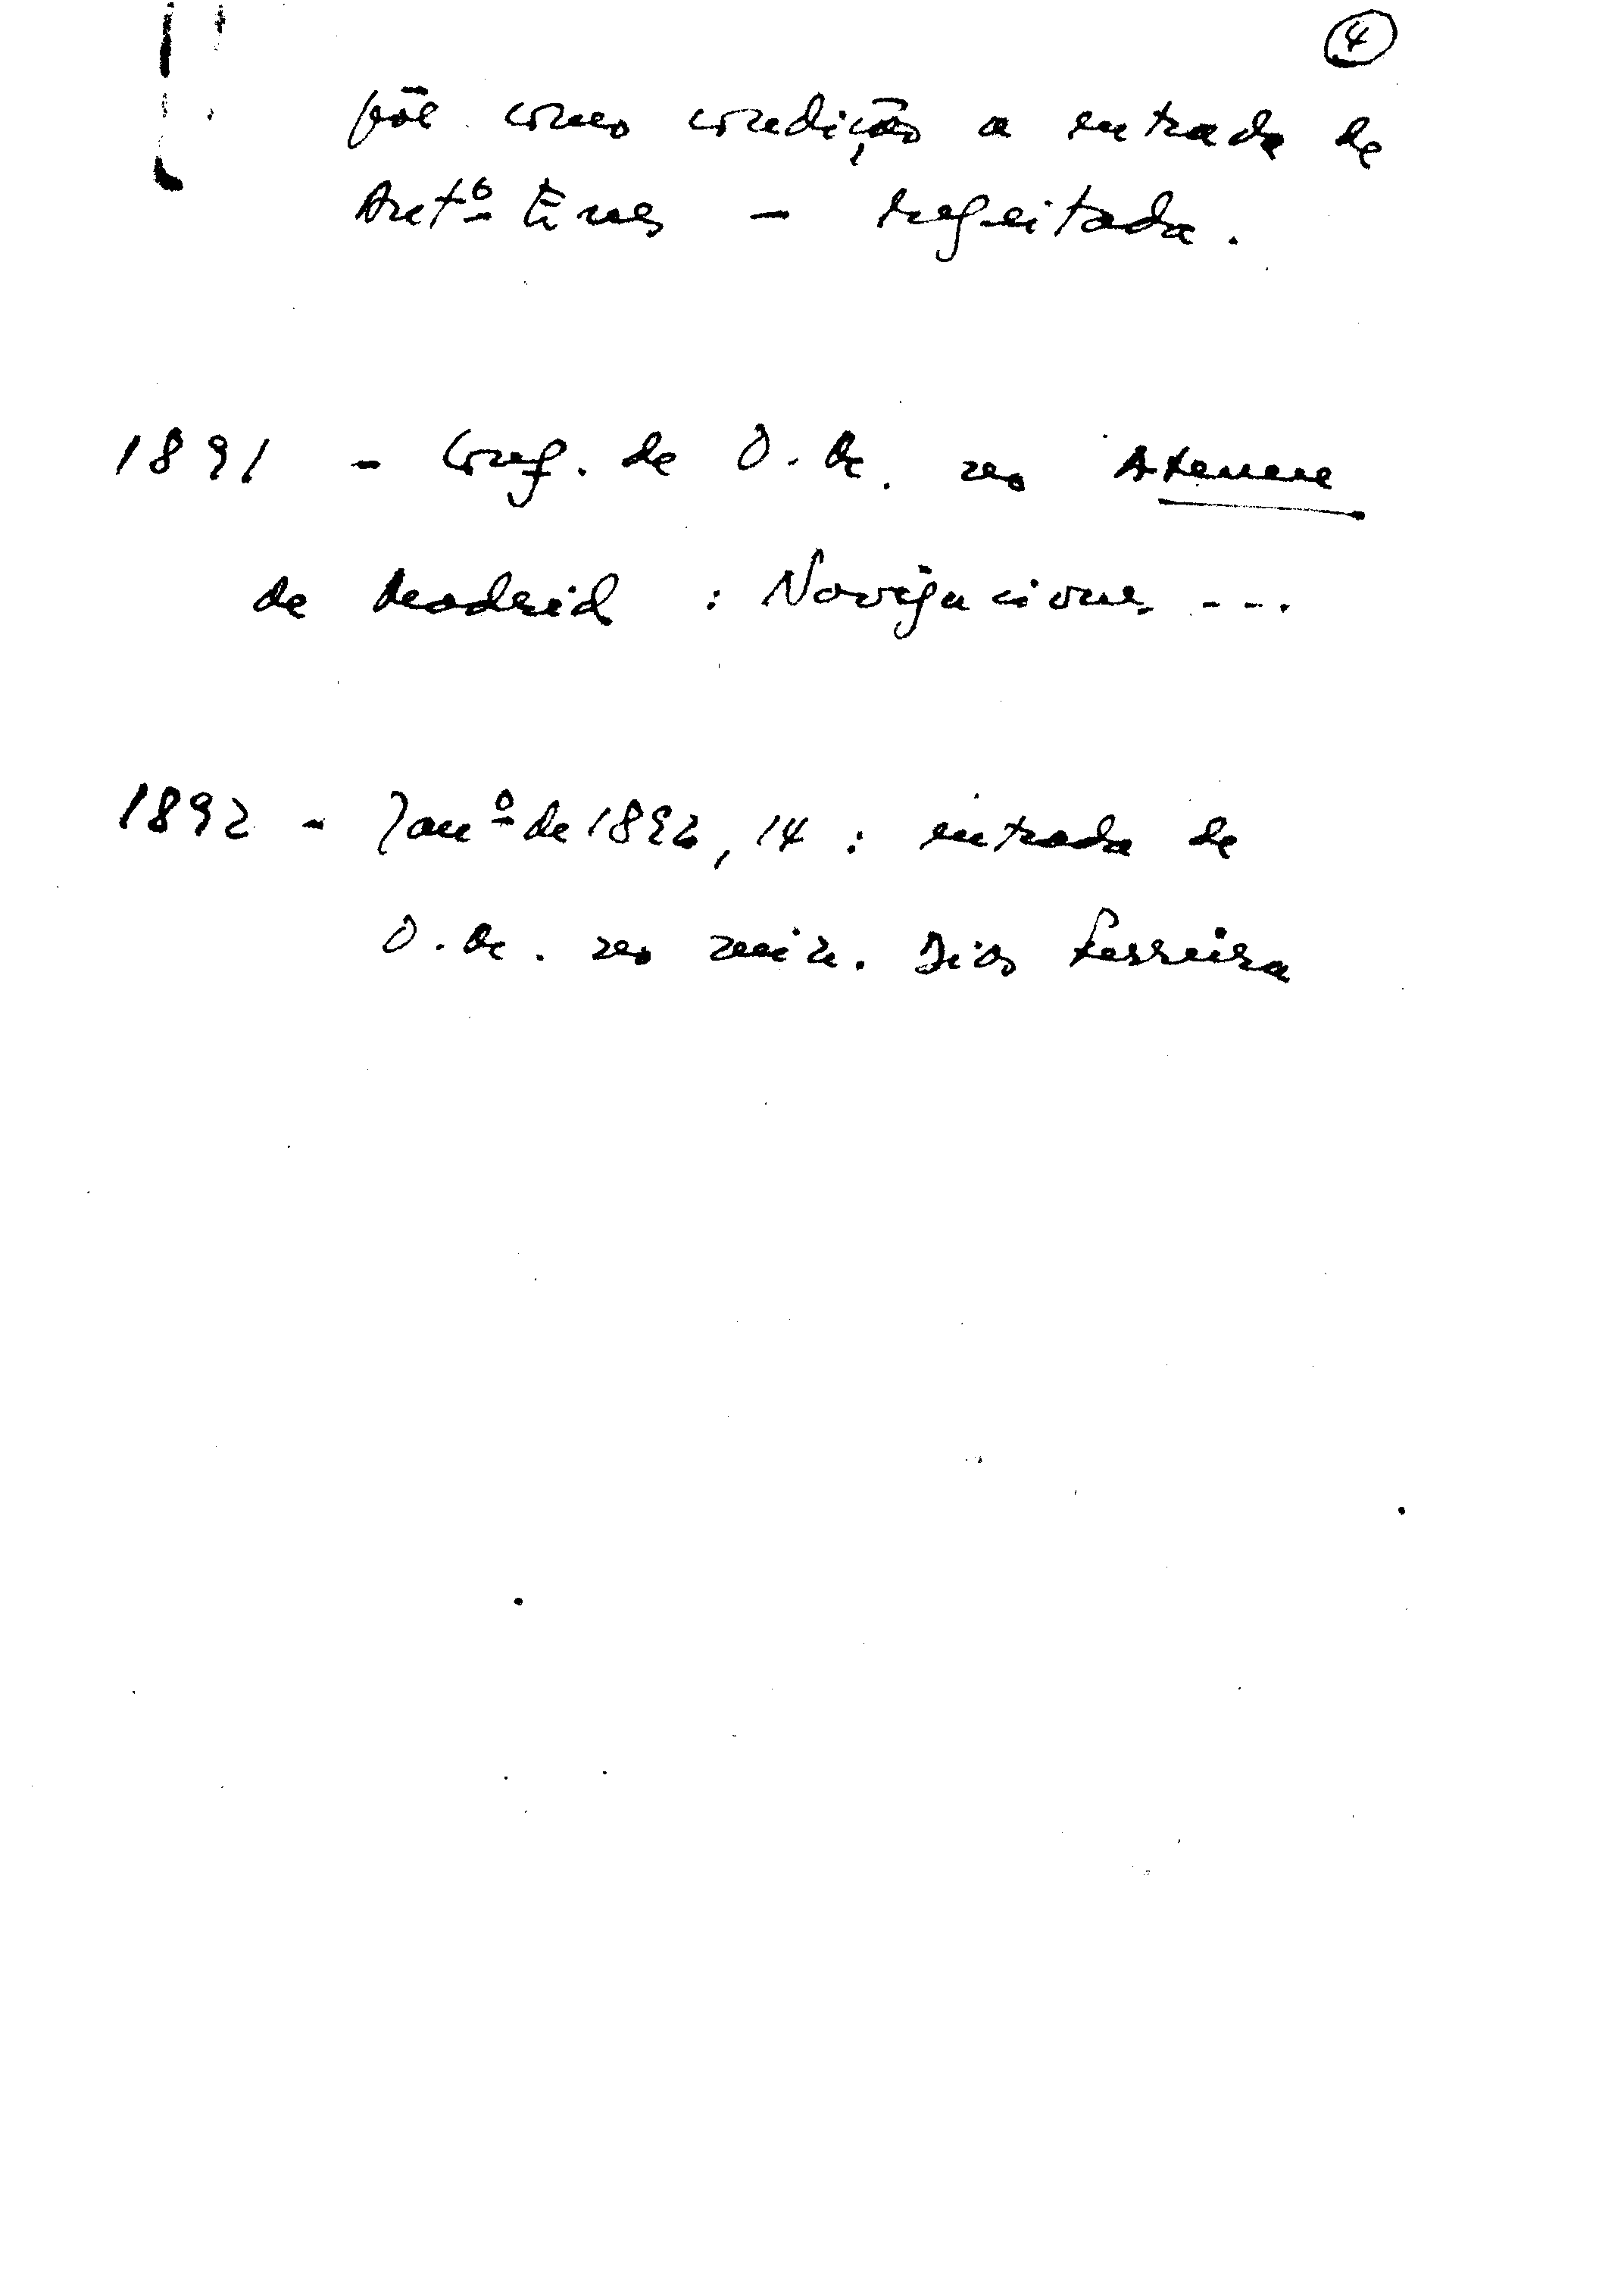 4
põe como condição a entrada de
Antº Enes - regeitada.
1891 - Conf. de O. M. no Ateneo
de Madrid : Navigaciones ---.
1892 - Janº de 1892, 14 : entrada de
O. M. no min. Dias Ferreira